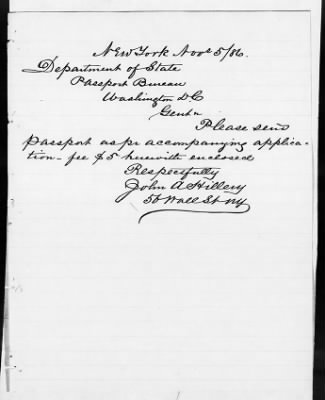 New York Nov 5/86.
Department of State
Passport Bureau
Washington D C
Gentn
Please send
Passport as pr accompanying applica-
tion - fee $5 herewith enclosed
Respectfully
John A Hillery
56 Wall St NY